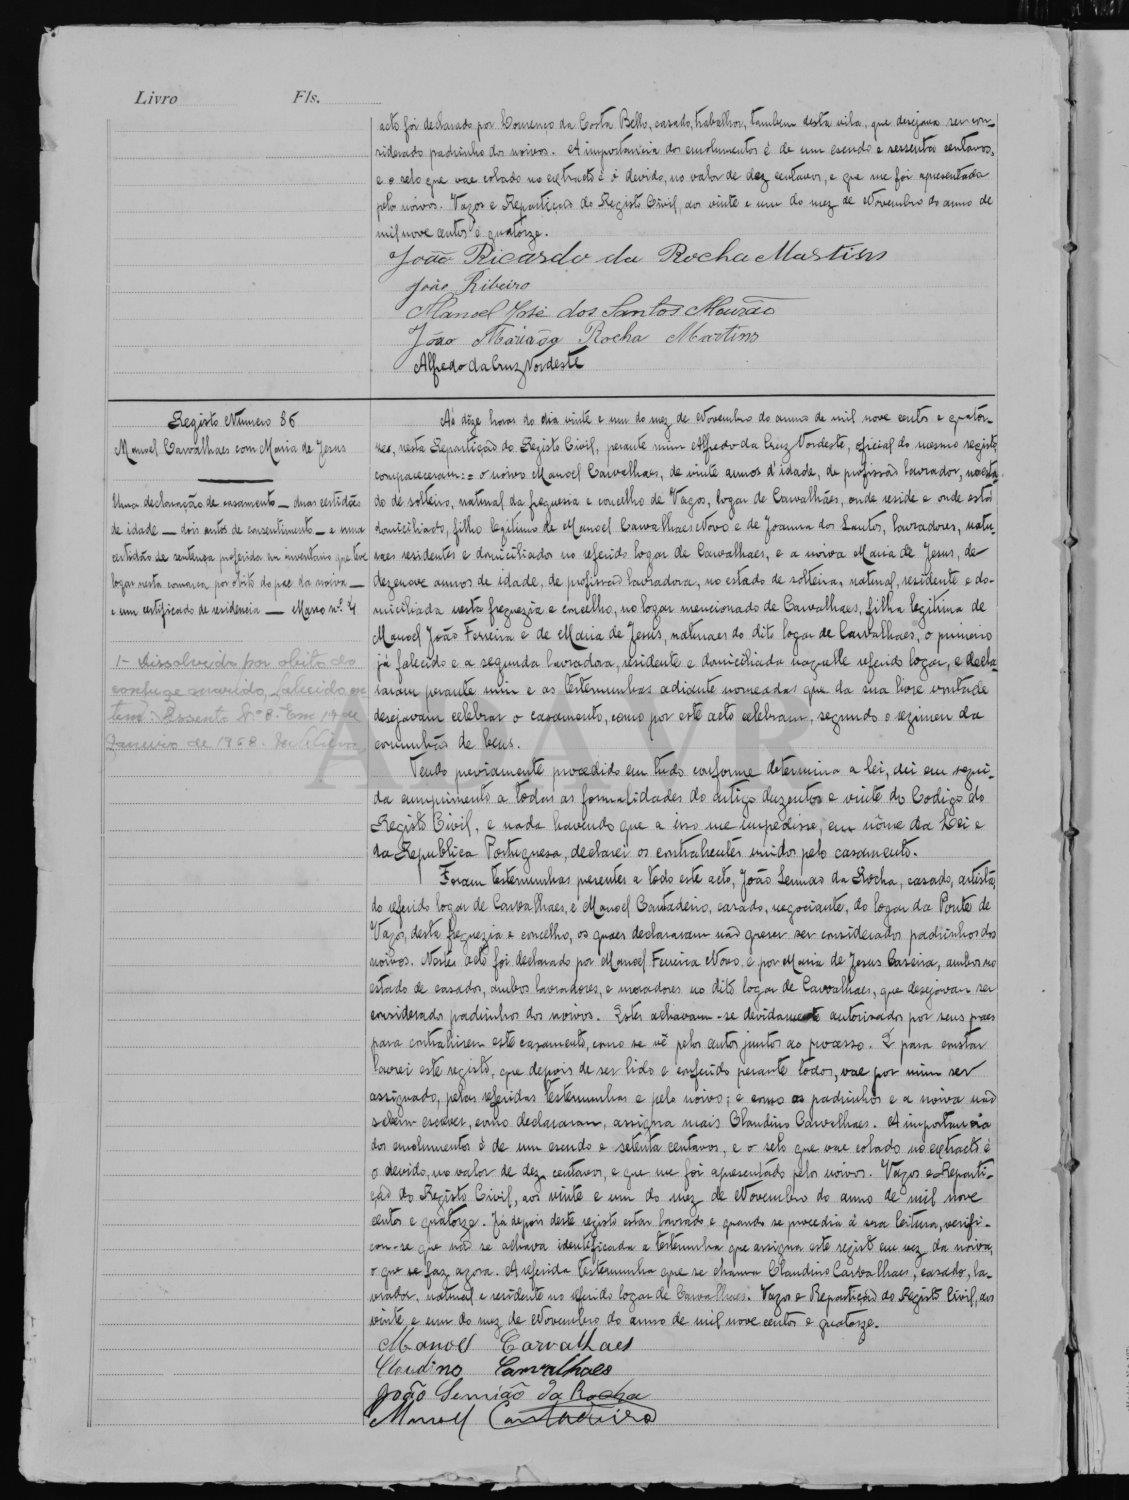 Livro Fls.
acto foi declarado por Lourenço da Costa Bello, casado, trabalhor, tambem desta vila, que desejava ser con-
siderado padrinho dos noivos. A importancia dos emolumentos é de um escudo e sessenta centavos,
e o selo que vae colado no extracto é o devido, no valor de dez centavos, e que me foi apresentada
pelos noivos. Vagos e Repartição do Registo Civil, aos vinte e um do mez de Novembro do anno de
mil nove centos e quatorze.
João Ricardo da Rocha Martins
João Ribeiro
Manoel José dos Santos Mourão
João Maria da Rocha Martins
Alfredo da Cruz Nordeste
Registo Numero 86
Manoel Carvalhaes com Maria de Jesus
Uma declaração de casamento — duas certidões
de idade — dois autos de consentimento — e uma
certidão de sentença proferida no inventario que teve
logar nesta comarca por obito do pae da noiva —
e um certificado de residencia — Masso nº 4
1 - Dissolvido por obito do
conjuge marido, falecido on
tem. Assento Nº 8. Em 19 de
Janeiro de 1968.
Ás doze horas do dia vinte e um do mez de Novembro do anno de mil nove centos e quator-
ze, nesta Repartição do Registo Civil, perante mim Alfredo da Cruz Nordeste, oficial do mesmo registo,
compareceram: = o noivo Manoel Carvalhaes, de vinte annos d'idade, de profissão lavrador, no esta-
do de solteiro, natural da freguesia e concelho de Vagos, logar de Carvalhaes, onde reside e onde está
domiciliado, filho legitimo de Manoel Carvalhaes Novo e de Joanna dos Santos, lavradores, natu-
raes residentes e domiciliados no referido logar de Carvalhaes, e a noiva Maria de Jesus, de
dezenove annos de idade, de profissão lavradora, no estado de solteira, natural, residente e do-
miciliada nesta freguezia e concelho, no logar mencionado de Carvalhaes, filha legitima de
Manoel João Ferreira e de Maria de Jesus, naturaes do dito logar de Carvalhaes, o primeiro
já falecido e a segunda lavradora, residente e domiciliada naquelle referido logar, e decla-
raram perante mim e as testemunhas adiante nomeadas que da sua livre vontade
desejavam celebrar o casamento, como por este acto celebram, segundo o regimen da
comunhão de bens.
Tendo previamente procedido em tudo conforme determina a lei, dei em segui-
da cumprimento a todas as formalidades do artigo duzentos e vinte do Codigo do
Registo Civil, e nada havendo que a isso me impedisse, em nôme da Lei e
da Republica Portuguesa, declarei os contrahentes unidos pelo casamento.
Foram testemunhas presentes a todo este acto, João Semião da Rocha, casado, artista,
do referido logar de Carvalhaes, e Manoel Cantadeiro, casado, negociante, do logar da Ponte de
Vagos, desta freguezia e concelho, os quaes declararam não querer ser considerados padrinhos dos
noivos. Neste acto foi declarado por Manoel Ferreira Novo, e por Maria de Jesus Caseira, ambos no
estado de casados, ambos lavradores, e moradores no dito logar de Carvalhaes, que desejavam ser
considerados padrinhos dos noivos. Estes achavam-se devidamente autorisados por seus paes
para contrahirem este casamento, como se vê pelos autos juntos ao processo. E para constar
lavrei este registo, que depois de ser lido e conferido perante todos, vae por mim ser
assignado, pelas referidas testemunhas e pelo noivo; e como os padrinhos e a noiva não
sabem escrever, como declararam, assigna mais Claudino Carvalhaes. A importancia
dos emolumentos é de um escudo e setenta centavos, e o selo que vae colado no extracto é
o devido, no valor de dez centavos, e que me foi apresentado pelos noivos. Vagos e Reparti-
ção do Registo Civil, aos vinte e um do mez de Novembro do anno de mil nove
centos e quatorze. Já depois deste registo estar lavrado e quando se procedia á sua leitura, verifi-
cou-se que não se achava identeficada a testemunha que assigna este registo em vez da noiva,
o que se faz agora. A referida testemunha que se chama Claudino Carvalhaes, casado, la-
vrador, natural e residente no referido logar de Carvalhaes. Vagos e Repartição do Registo Civil, aos
vinte e um do mez de Novembro do anno de mil nove centos e quatorze.
Manoel Carvalhaes
Claudino Carvalhaes
João Semião da Rocha
Manoel Cantadeiro
ADAVR